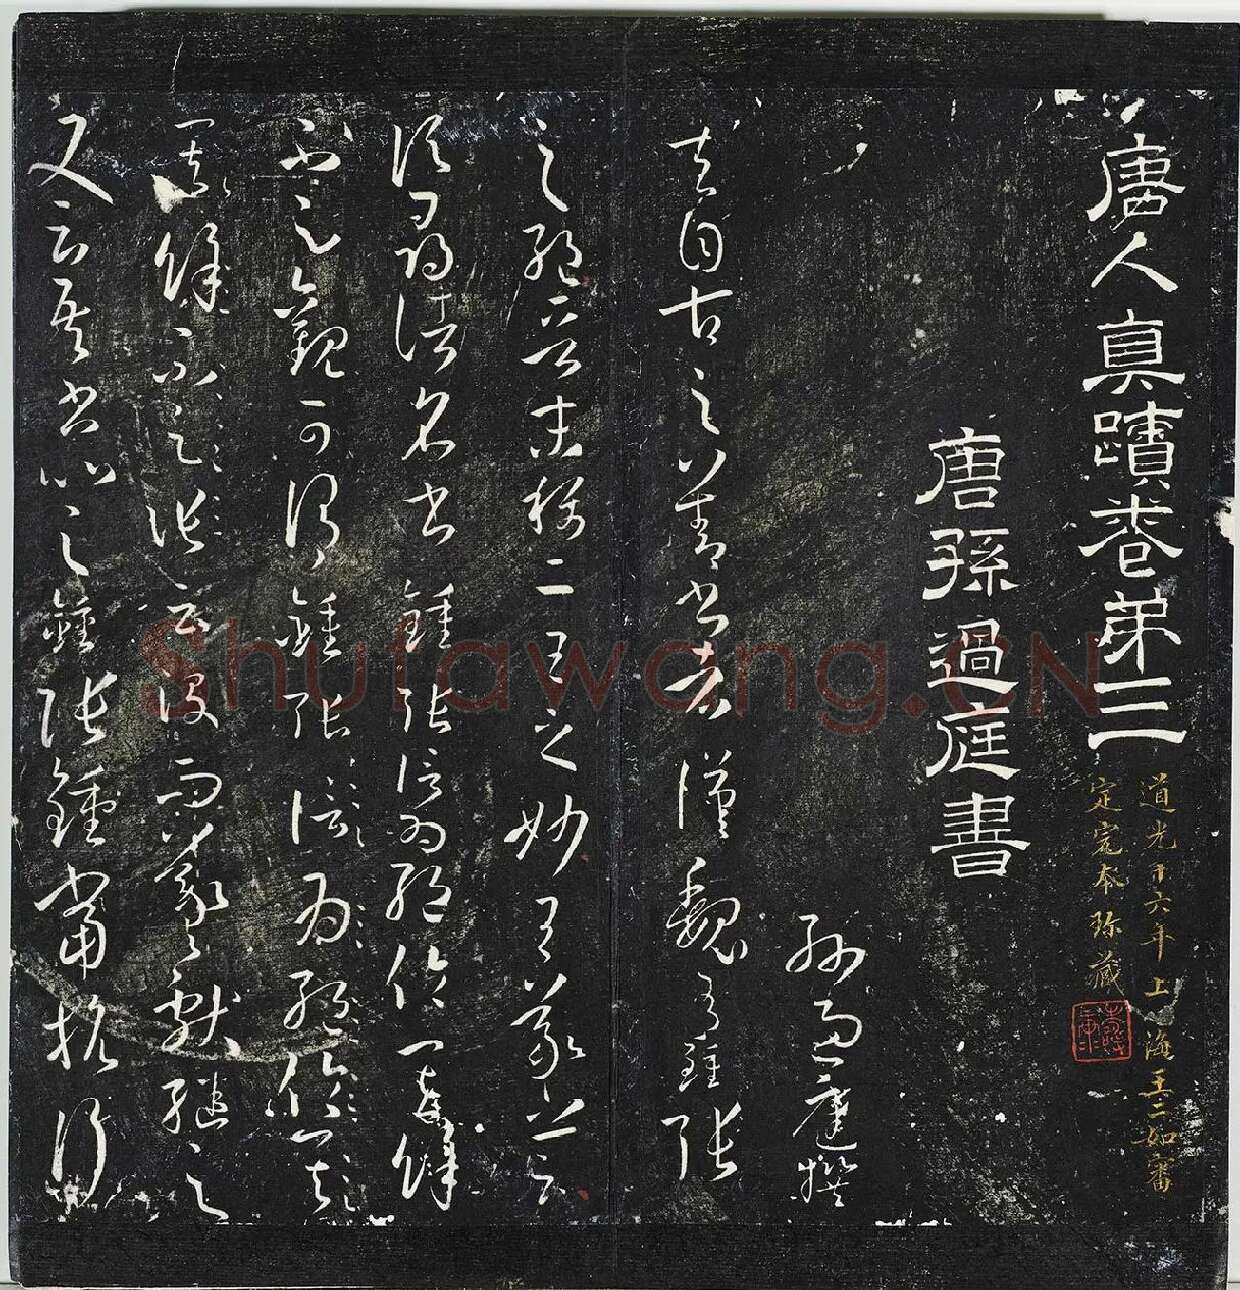 唐人真蹟卷弟三
道光十六年上海王二如審
定本珎藏
唐孫過庭書
孫過庭撰
夫自古之善書者漢魏有鍾張
之絕晉末稱二王之妙王羲之云
頃尋諸名書鍾張信為絕倫其餘
不足觀可謂鍾張信為絕倫其
其餘不足張云沒而羲獻繼之
又云吾書比之鍾張鍾當抗行
Shufawang.CN